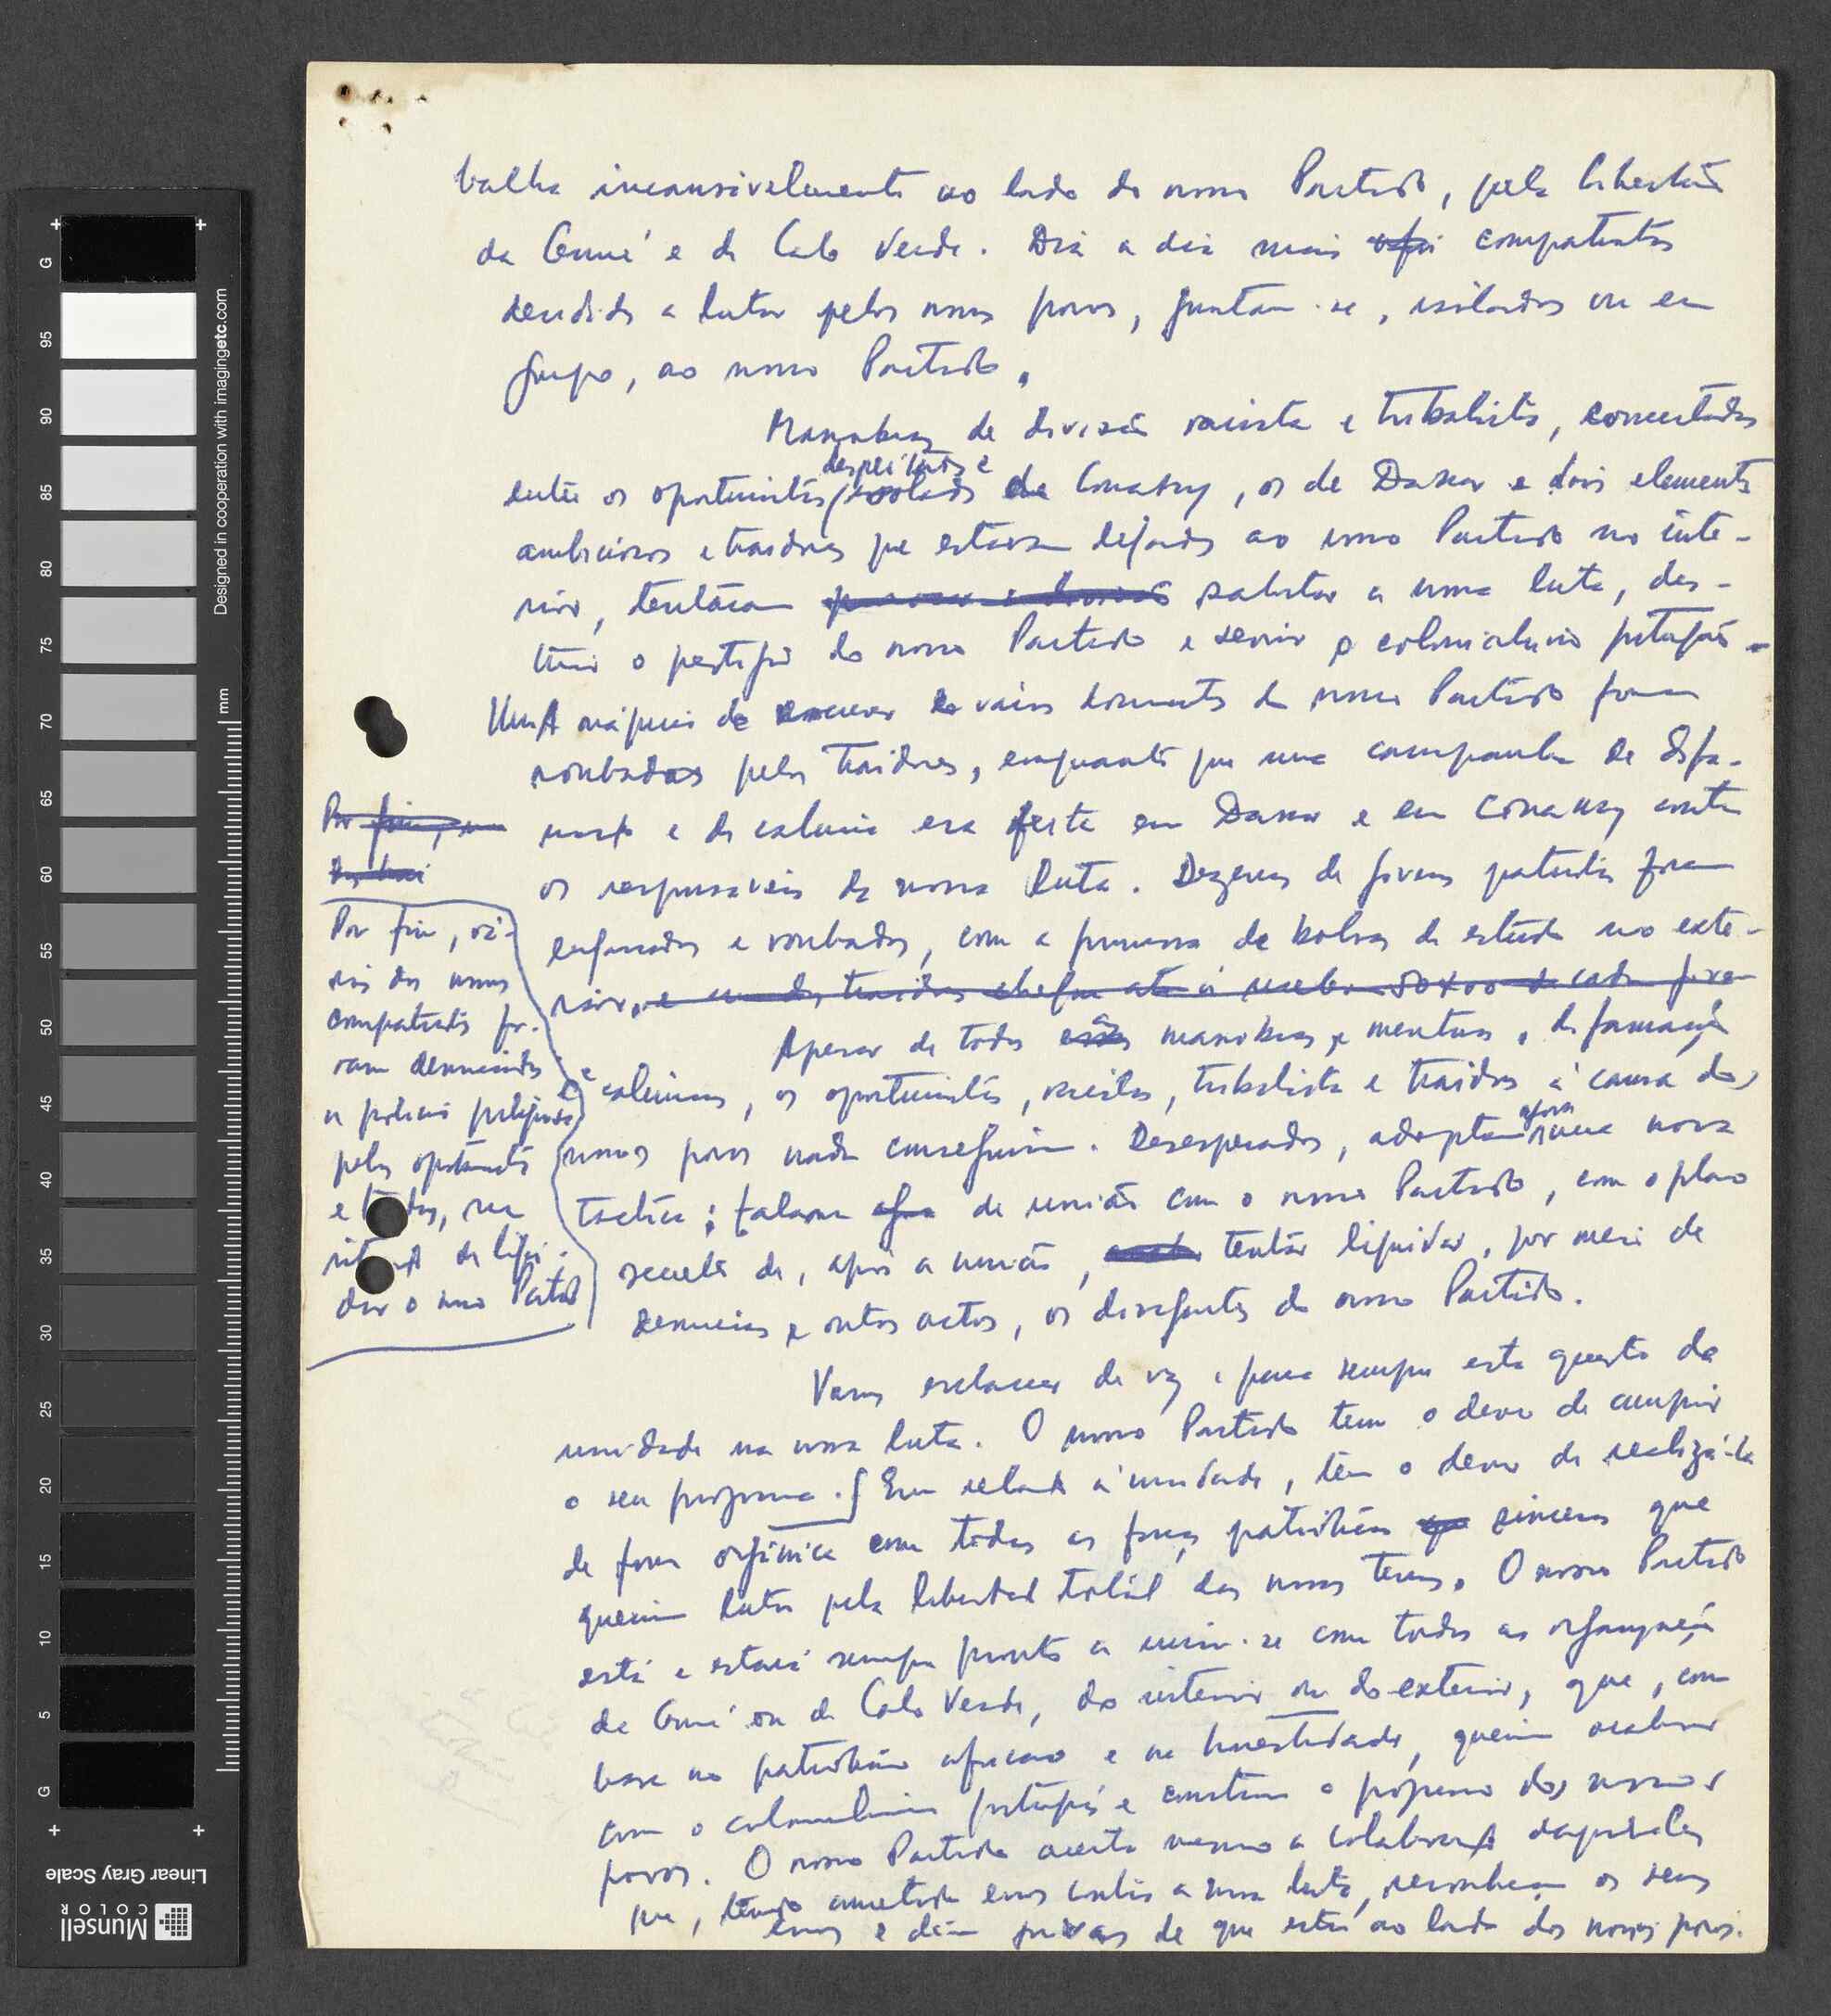 balha incansàvelmente ao lado do nosso Partido, pela libertação
da Guiné e de Cabo Verde. Dia a dia mais compatriotas
decididos a lutar pelos nossos povos, juntam-se, isolados ou em
grupo, ao nosso Partido.
Manobras de divisão racista e tribalista, concertadas
despeitados e
entre os oportunistas isolados de Conakry, os de Dakar e dois elementos
ambiciosos e traidores que estavam ligados ao nosso Partido no inte-
rior, tentaram sabotar a nossa luta, des-
truir o prestígio do nosso Partido e servir o colonialismo português.
Uma máquina de escrever e vários documentos do nosso Partido foram
roubados pelos traidores, enquanto que uma campanha de difa-
mação e de calúnia era feita em Dakar e em Conakry contra
os responsáveis da nossa luta. Dezenas de jovens patriotas foram
enganados e roubados, com a promessa de bolsas de estudo no exte-
rior, e um dos traidores chegou até a receber 50x00 de cada jovem
Por fim, um
dos
Por fim, vá-
rios dos nossos
compatriotas fo-
ram denunciados
à polícia portuguesa
pelos oportunistas
e
de liqui-
dar o nosso Partido
Apesar de todas manobras, mentiras, difamação
e calúnias, os oportunistas, racistas, tribalistas e traidores à causa dos
nossos povos nada conseguiram. Desesperados, adoptam agora uma nova
táctica: falam de união com o nosso Partido, com o plano
secreto de, após a união, tentar liquidar, por meio de
denúncias e outros actos, os dirigentes do nosso Partido.
Vamos esclarecer de vez e para sempre esta questão da
unidade na nossa luta. O nosso Partido tem o dever de cumprir
o seu programa. Em relação à unidade, tem o dever de realizá-la
de forma orgânica com todas as forças patrióticas sinceras que
queiram lutar pela libertação total das nossas terras. O nosso Partido
está e estará sempre pronto a unir-se com todas as organizações
da Guiné ou de Cabo Verde, do interior ou do exterior, que, com
base no patriotismo africano e na honestidade, queiram acabar
com o colonialismo português e construir o progresso dos nossos
povos. O nosso Partido aceita mesmo a colaboração daqueles
que, tendo cometido erros contra a nossa luta, reconheçam os seus
erros e dêem provas de que estão ao lado dos nossos povos.
Designed in cooperation with imagingetc.com
mm
G
95
90
85
80
75
70
65
60
55
50
45
40
35
30
25
20
15
10
5
G
Linear Gray Scale
Munsell
COLOR